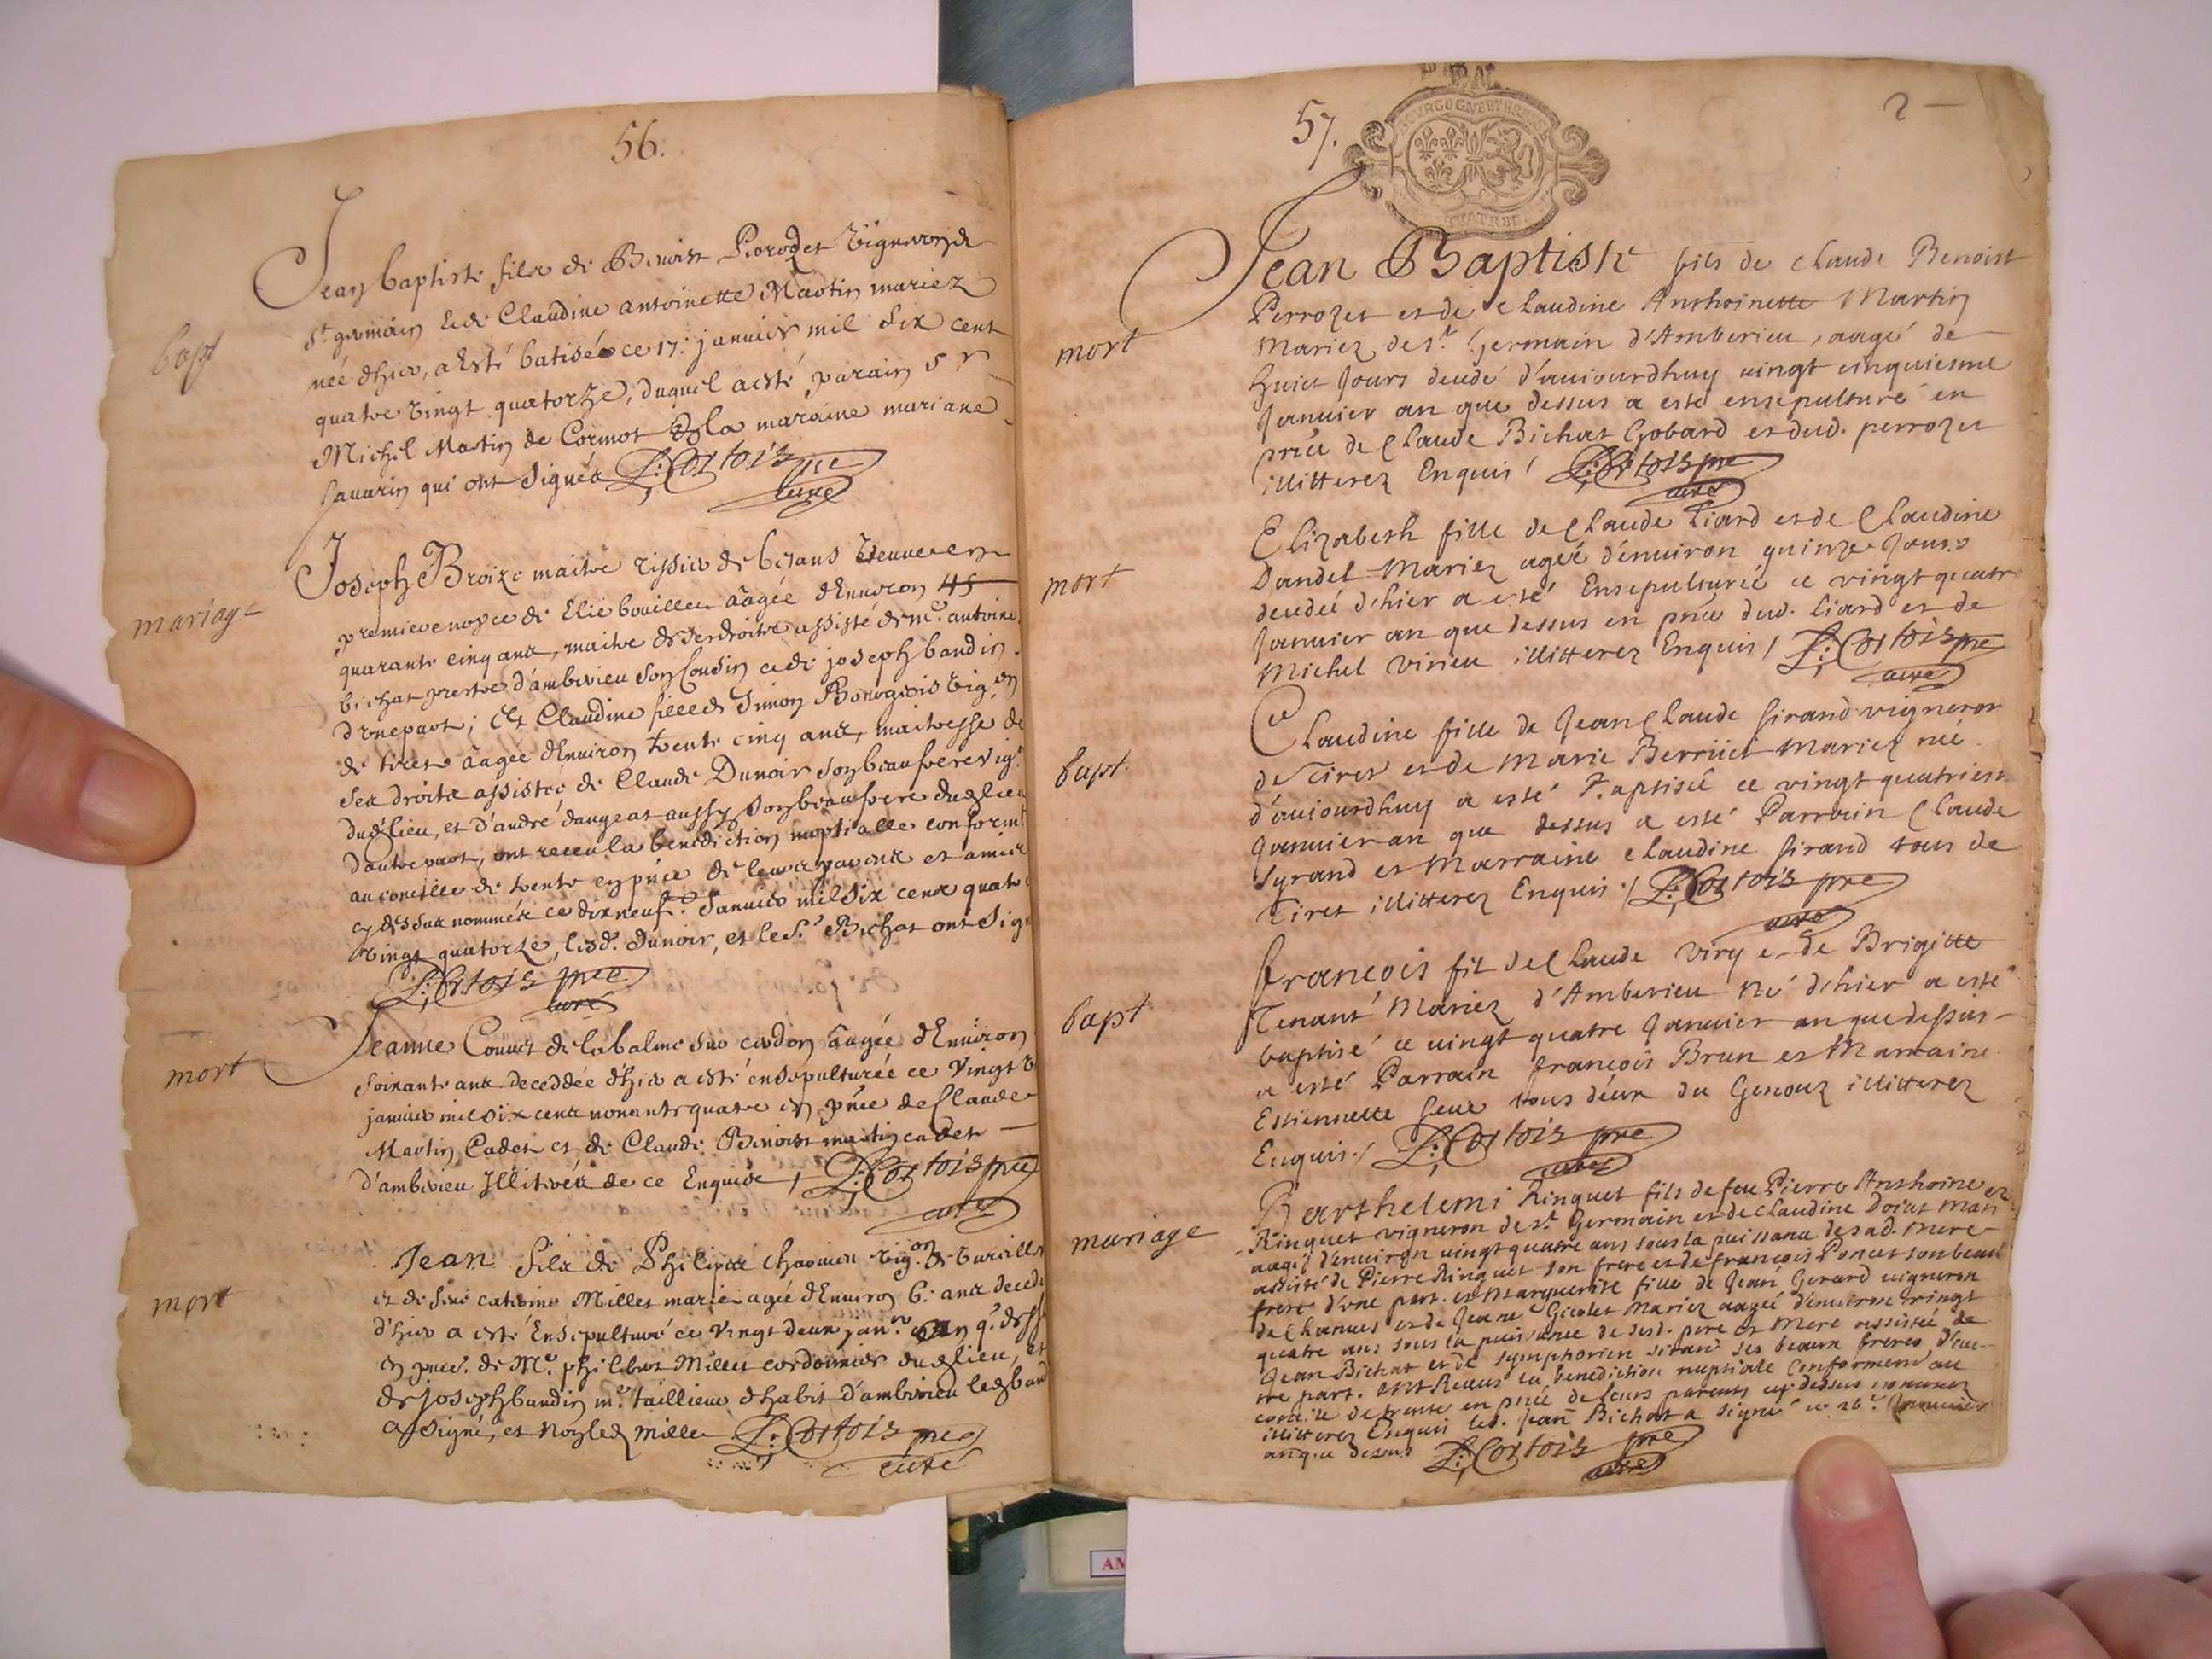 56.
bapt
Jean baptiste filz de Benoist Perrozet vigneron de
st germain et de Claudine antoinette Martin mariez
néé d'hier, a esté batiséé ce 17: janvier mil six cent
quatre vingt quatorze, duquel a esté parain sr
Michel Martin de Cormoz et la maraine mariane
Sauarin qui ont signéz L: Cortois pre
curé
mariage
Joseph Broize maitre
premiere nopce de Elie bouillet aagée d'Environ 45
quarante cinq ans, maitre de ses droitz assisté de mre. antoine
bichat prestre d'ambérieu son Cousin et de joseph baudin
d'vne part; Et Claudine fille de Simon Bourgeois vig.on
de tiret aagée d'Environ trente cinq ans, maitresse de
ses droits assistée de Claude Dunoir son beaufrere vig.n
dud. lieu, et d'andré dangeat aussy son beaufrere dud. lieu
d'autre part, ont receu la benediction nuptialle conform.t
au concille de trente en pnce de leurs parens et amis
cy dessus nomméz ce dixneuf.e Janvier mil six cens quatre
vingt quatorze, lesd. dunoir, et le S.r Bichat ont signé
L: Cortois pre
curé
mort
Jeanne Couvet de la balme sur cerdon aagée d'Environ
soixante ans decedée d'hier a esté ensepulturée ce vingt
janvier mil six cens nonante quatre en pnce de Claude
Martin Cadet et de Claude Benoist martin cadet
d'ambérieu Illiteréz de ce Enquis / L: Cortois pre
curé
mort
Jean filz de Philipe Charvieu vig.on de
et de feue caterine Millet mariez agéé d'Environ 6. ans decedé
d'hier a esté Ensepulturé ce vingt deux janv.er an q.e dessus
en pnce. de Mre. philibert Millet cordonnier dud. lieu, et
de joseph baudin m.re taillieur d'habit d'ambérieu led. baudin
a signé, et non led. millet L: Cortois pre
curé
57.
2
BOURGOGNE ET BRESSE
QUATRE D.
mort
Jean Baptiste fils de Claude Benoist
Perrozet et de Claudine Anthoinette Martin
Mariez de st. Germain d'Amberieu, aagé de
huict Jours decedé d'aujourdhuy vingt cinquiesme
Janvier an que dessus a esté ensepulturé en
pnce de Claude Bichat Gobard et dud. perrozet
illitterez Enquis / L: Cortois pre
curé
mort
Elizabeth fille de Claude Liard et de Claudine
Dandel Mariez agéé d'environ quinze Jours
decedéé d'hier a esté Ensepulturée ce vingt quatre
Janvier an que dessus en pnce dud. Liard et de
Michel Virieu illitterez Enquis / L: Cortois pre
curé
bapt.
Claudine fille de Jean Claude Sirand vigneron
de Tiret et de Marie Berrüet Mariez née
d'aujourdhuy a esté Baptiséé ce vingt quatriesme
Janvier an que dessus a esté Parrain Claude
Syrand et Marraine Claudine Sirand tous de
Tiret illitterez Enquis ./ L: Cortois pre
curé
bapt
François fil de Claude Viry et de Brigitte
Tenant Mariez d'Amberieu Né d'hier a esté
baptisé ce vingt quatre Janvier an que dessus
a esté Parrain françois Brun et Marraine
Estiennette seue tous deux du Genouz illitterez
Enquis ./ L: Cortois pre
curé
mariage
Barthelemi Ringuet fils de feu Pierre Anthoine
Ringuet vigneron de st. Germain et de Claudine Doiat Mariez
aagé d'environ vingt quatre ans sous la puissance de sad. mere
assisté de Pierre Ringuet son frere et de françois Poncet son beau
frere d'vne part. et Marguerite fille de Jean Gerard vigneron
de Chanves et de Jeane Gicolet Mariez aagéé d'environ vingt
quatre ans sous la puissance de sesd. pere et Mere assistée de
Jean Bichat et de Symphorien Sirand ses beaux freres d'au-
tre part. ont Receus la benediction nuptiale Conformem. au
concile de trente en pnce de leurs parents cy dessus nommez
illitterez Enquis led. Jean Bichat a signé ce 26e Janvier
an que dessus L: Cortois pre
curé
AM